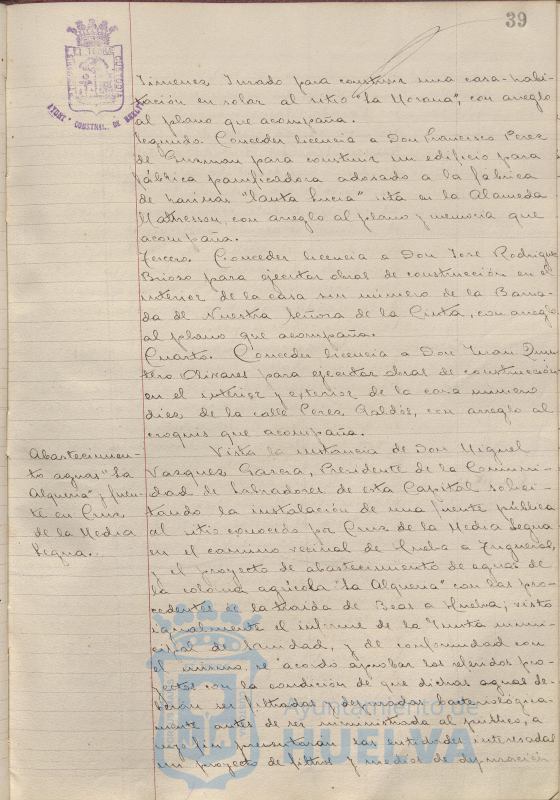 39
AYUNTº CONSTNAL. DE HUELVA
Jimenez Jurado para construir una casa-habi-
tación en solar al sitio "La Morana", con arreglo
al plano que acompaña.
Segundo. Conceder licencia a Don Francisco Perez
de Guzman para construir un edificio para
fábrica panificadora adosado a la fabrica
de harinas "Santa Lucia" sita en la Alameda
con arreglo al plano y memoria que
acompaña.
Tercero. Conceder licencia a Don José Rodriguez
Brioso para ejecutar obras de construcción en el
interior de la casa sin número de la Barria-
da de Nuestra Señora de la Cinta, con arreglo
al plano que acompaña.
Cuarto. Conceder licencia a Don Juan Quin-
tero Olivares para ejecutar obras de construcción
en el interior y exterior de la casa número
diez de la calle Perez Galdós, con arreglo al
croquis que acompaña.
Abastecimien-
to aguas "La
Alqueria" y fuen-
te en Cruz
de la Media
Legua.
Vista la instancia de Don Miguel
Vazquez Garcia, Presidente de la Comuni-
dad de Labradores de esta Capital solici-
tando la instalación de una fuente pública
al sitio conocido por Cruz de la Media Legua
en el camino vecinal de Huelva a Trigueros,
y el proyecto de abastecimiento de aguas de
la colonia agrícola "La Alqueria" con las pro-
cedentes de la traida de Beas a Huelva; visto
igualmente el informe de la Junta muni-
cipal de Sanidad, y de conformidad con
el mismo, se acordo aprobar los referidos pro-
yectos con la condición de que dichas aguas de-
berán ser filtradas y depuradas bacteriológica-
mente antes de ser suministrada al público, a
cuyo fin presentarán las entidades interesadas
un proyecto de filtros y medios de depuración
Ayuntamiento de
HUELVA